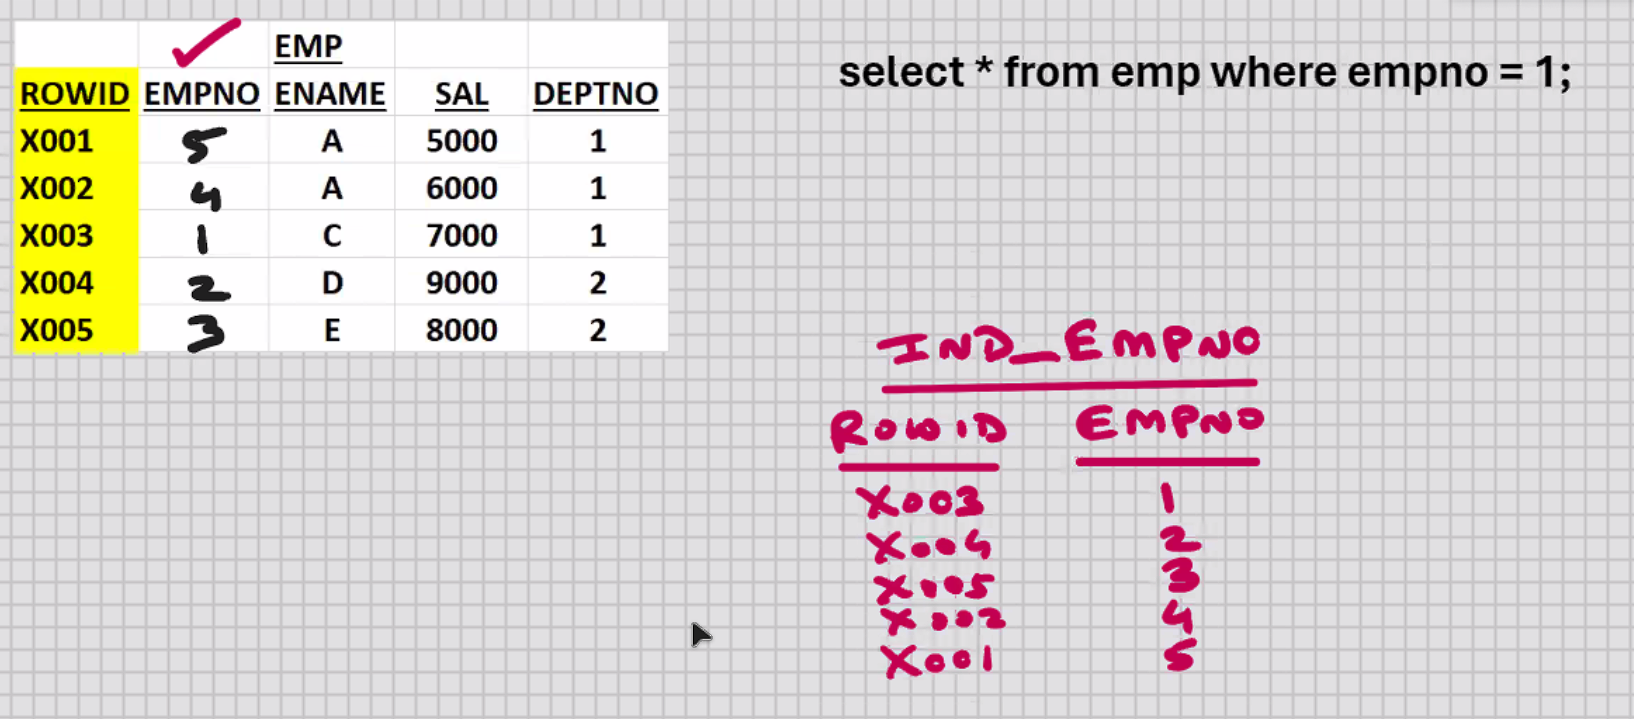 EMP
ROWID EMPNO ENAME SAL DEPTNO
X001 5 A 5000 1
X002 4 A 6000 1
X003 1 C 7000 1
X004 2 D 9000 2
X005 3 E 8000 2
select * from emp where empno = 1;
IND_EMPNO
ROWID EMPNO
X003 1
X004 2
X005 3
X002 4
X001 5